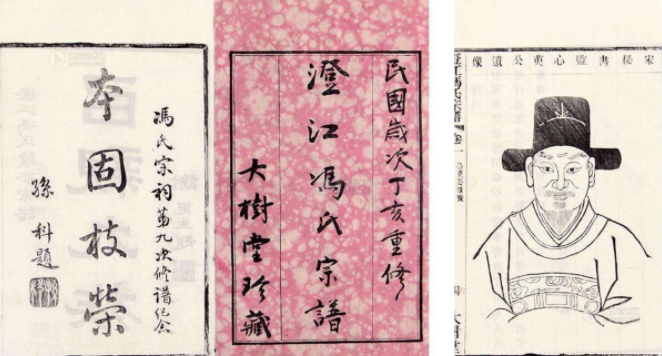 馮氏宗祠第九次修譜紀念
本固枝榮
孫科題
民國歲次丁亥重修
澄江馮氏宗譜
大樹堂珍藏
宋秘書監心公遺像
澄江馮氏宗譜 卷一